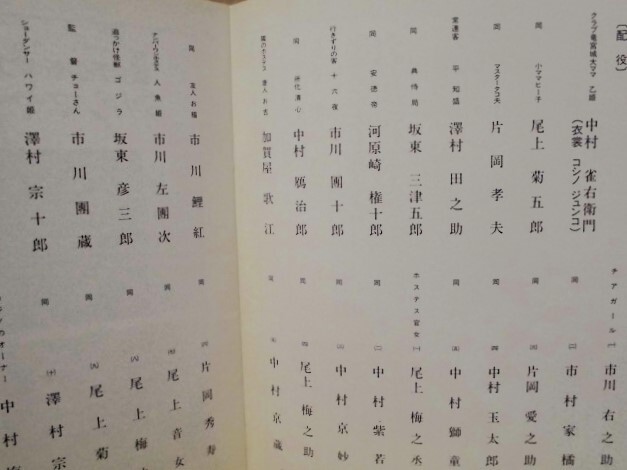 〔配役〕
クラブ竜宮城大ママ 乙姫 中村 雀右衛門
(衣裳 コシノ ジュンコ)
同 小ママヒー子 尾上 菊五郎
同 マスタータコ夫 片岡 孝夫
常連客 平 知盛 澤村 田之助
同 典侍局 坂東 三津五郎
同 安徳帝 河原崎 権十郎
行きずりの客 十六夜 市川 團十郎
同 所化清心 中村 鴈治郎
加賀屋 歌江
同 市川 鯉紅
人魚姫 市川 左團次
追っかけ怪獣 ゴジラ 坂東 彦三郎
監督 チョーさん 市川 團蔵
ショーダンサー ハワイ姫 澤村 宗十郎
チアガール (一) 市川 右之助
同 (二) 市村 家橘
同 (三) 片岡 愛之助
同 (四) 中村 玉太郎
同 (五) 中村 獅童
ホステス官女 (一) 尾上 梅之丞
同 (二) 中村 紫若
同 (三) 中村 京妙
同 (四) 尾上 梅之助
同 (五) 中村 京蔵
同 (六) 片岡 秀寿
同 尾上 音女
同 (八) 尾上 梅
同 (九) 尾上 菊
同 (十) 澤村 宗
のオーナー 中村